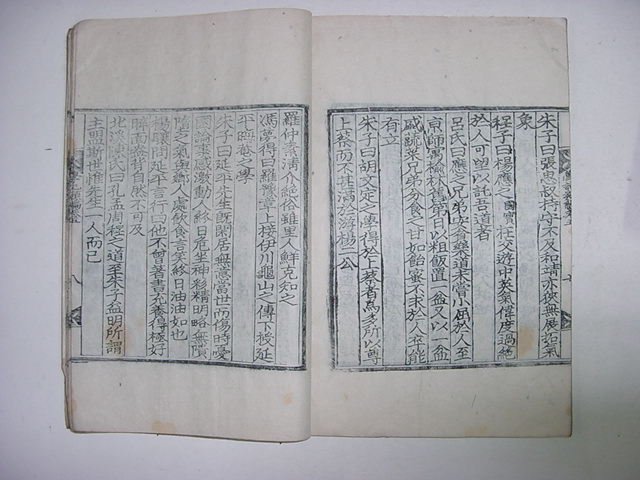 朱子曰張思叔持守不及和靖亦狹無展拓氣
象
程子曰楊應之國寶在交遊中英氣偉度過絕
於人可望以託吾道者
呂氏曰應之兄弟安貧樂道未嘗小屈於人至
京師寓
以粗飯置一盆又以一盆
兄弟分食甘如飴蜜不求於人卒能
有立
朱子曰胡文定之傳得於上蔡者爲多所以尊
上蔡而不甚滿於游楊二公
羅仲素清介絕俗雖里人鮮克知之
馮夢得曰羅豫章上接伊川龜山之傳下授延
平晦菴之學
朱子曰延平先生既閒居無意當世而傷時憂
國論事感激動人終日危坐神彩精明略無隤
墮之氣與鄉人處飲食言笑終日油油如也
楊
問延平言行曰他不曾著書充養得極好
睟面盎背自然不可及
北溪陳氏曰孔孟周程之道至朱子益明所謂
主盟斯世獨惟先生一人而已